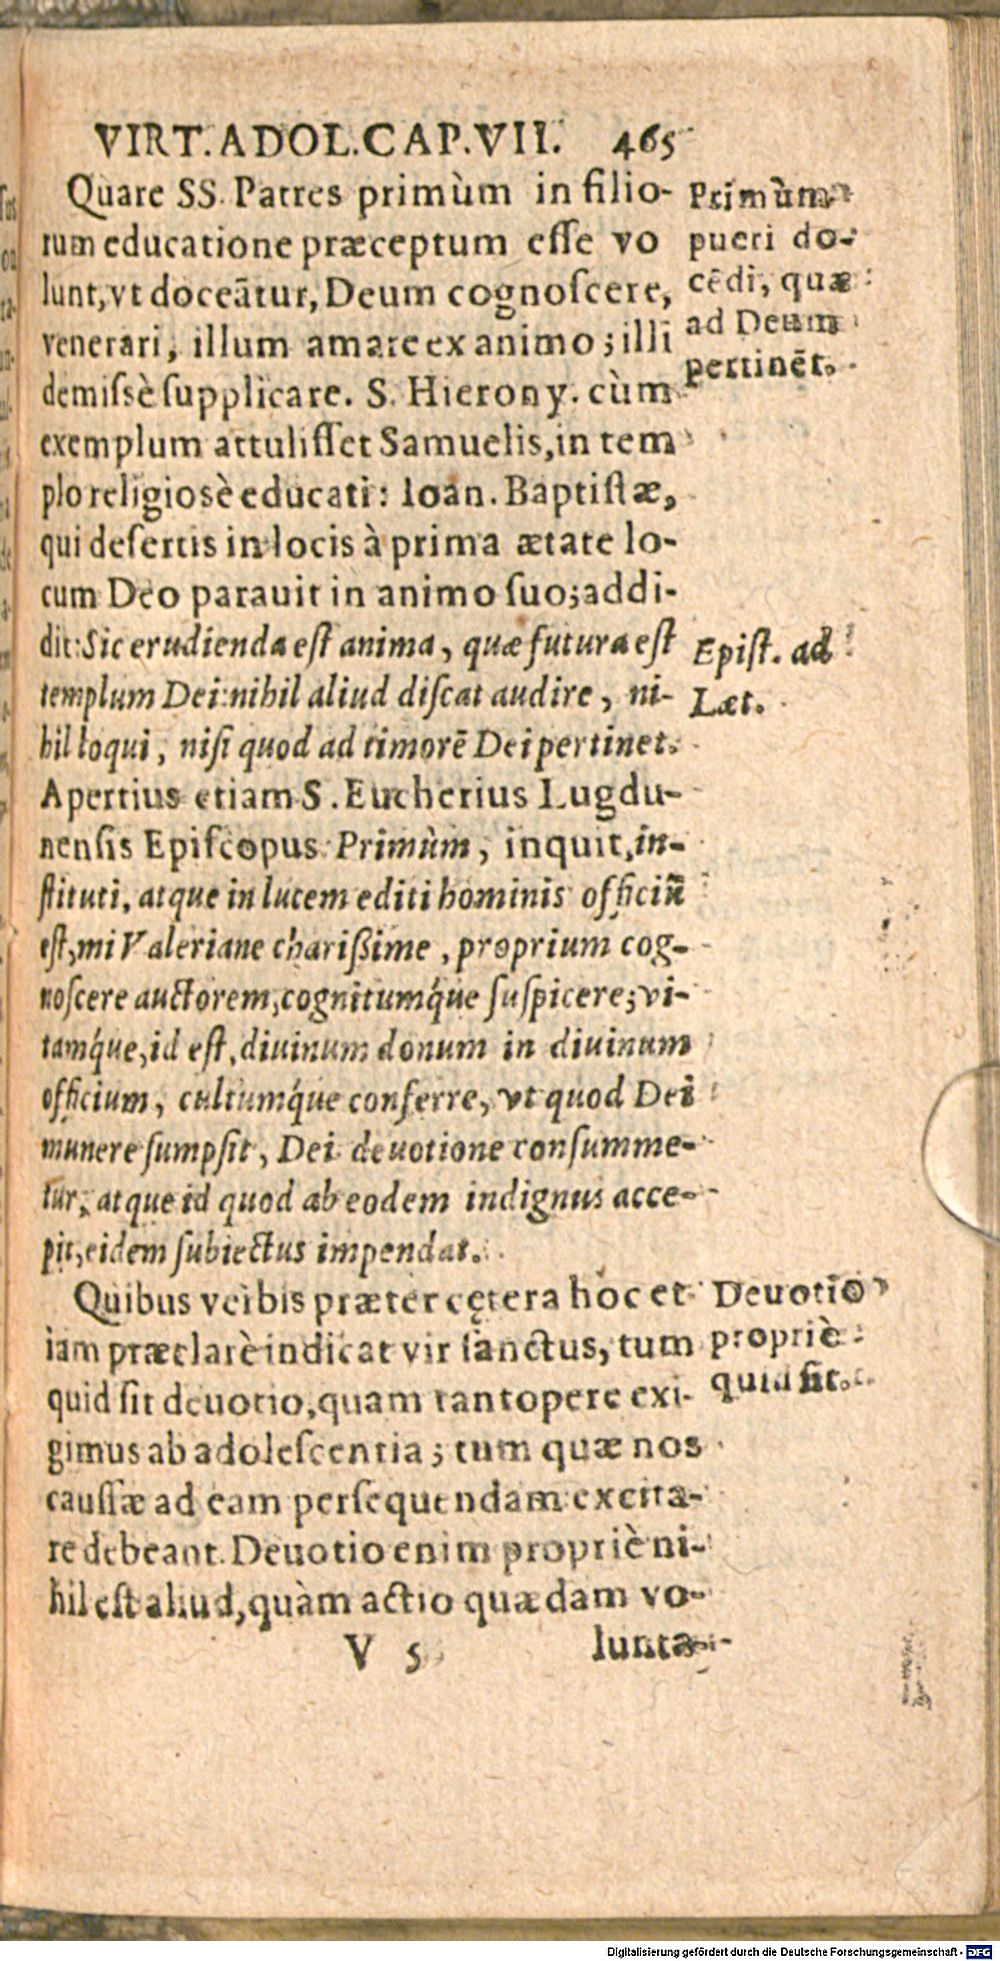 VIRT. ADOL. CAP. VII. 465
Quare SS. Patres primùm in filio-
rum educatione præceptum esse vo
lunt, vt doceātur, Deum cognoscere,
venerari, illum amare ex animo; illi
demissè supplicare. S. Hierony. cùm
exemplum attulisset Samuelis, in tem
plo religiosè educati: Ioan. Baptistæ,
qui desertis in locis à prima ætate lo-
cum Deo parauit in animo suo; addi-
dit: Sic erudienda est anima, quæ futura est
templum Dei: nihil aliud discat audire, ni-
hil loqui, nisi quod ad timorē Dei pertinet.
Apertius etiam S. Eucherius Lugdu-
nensis Episcopus. Primùm, inquit, in-
stituti, atque in lucem editi hominis officiū
est, mi Valeriane charißime, proprium cog-
noscere auctorem, cognitumq́ue suspicere; vi-
tamq́ue, id est, diuinum donum in diuinum
officium, cultumq́ue conferre, vt quod Dei
munere sumpsit, Dei deuotione consumme-
tur; atque id quod ab eodem indignus acce-
pit, eidem subiectus impendat.
Quibus verbis præter cętera hoc et
iam præclarè indicat vir sanctus, tum
quid sit deuotio, quam tantopere exi-
gimus ab adolescentia; tum quæ nos
caussæ ad eam persequendam excita-
re debeant. Deuotio enim propriè ni-
hil est aliud, quàm actio quædam vo-
V 5 lunta-
Primùm
pueri do-
cēdi, quæ
ad Deum
pertinēt.
Epist. ad
Læt.
Deuotio
propriè
quid sit.
Digitalisierung gefördert durch die Deutsche Forschungsgemeinschaft - DFG